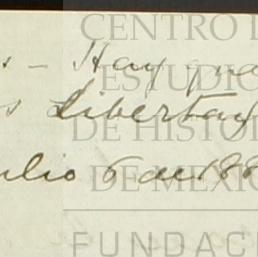 s - Hay que
s Libertad
ulio 6 de 188
CENTRO D
ESTUDIO
DE HISTO
DE MEXIC
FUNDAC